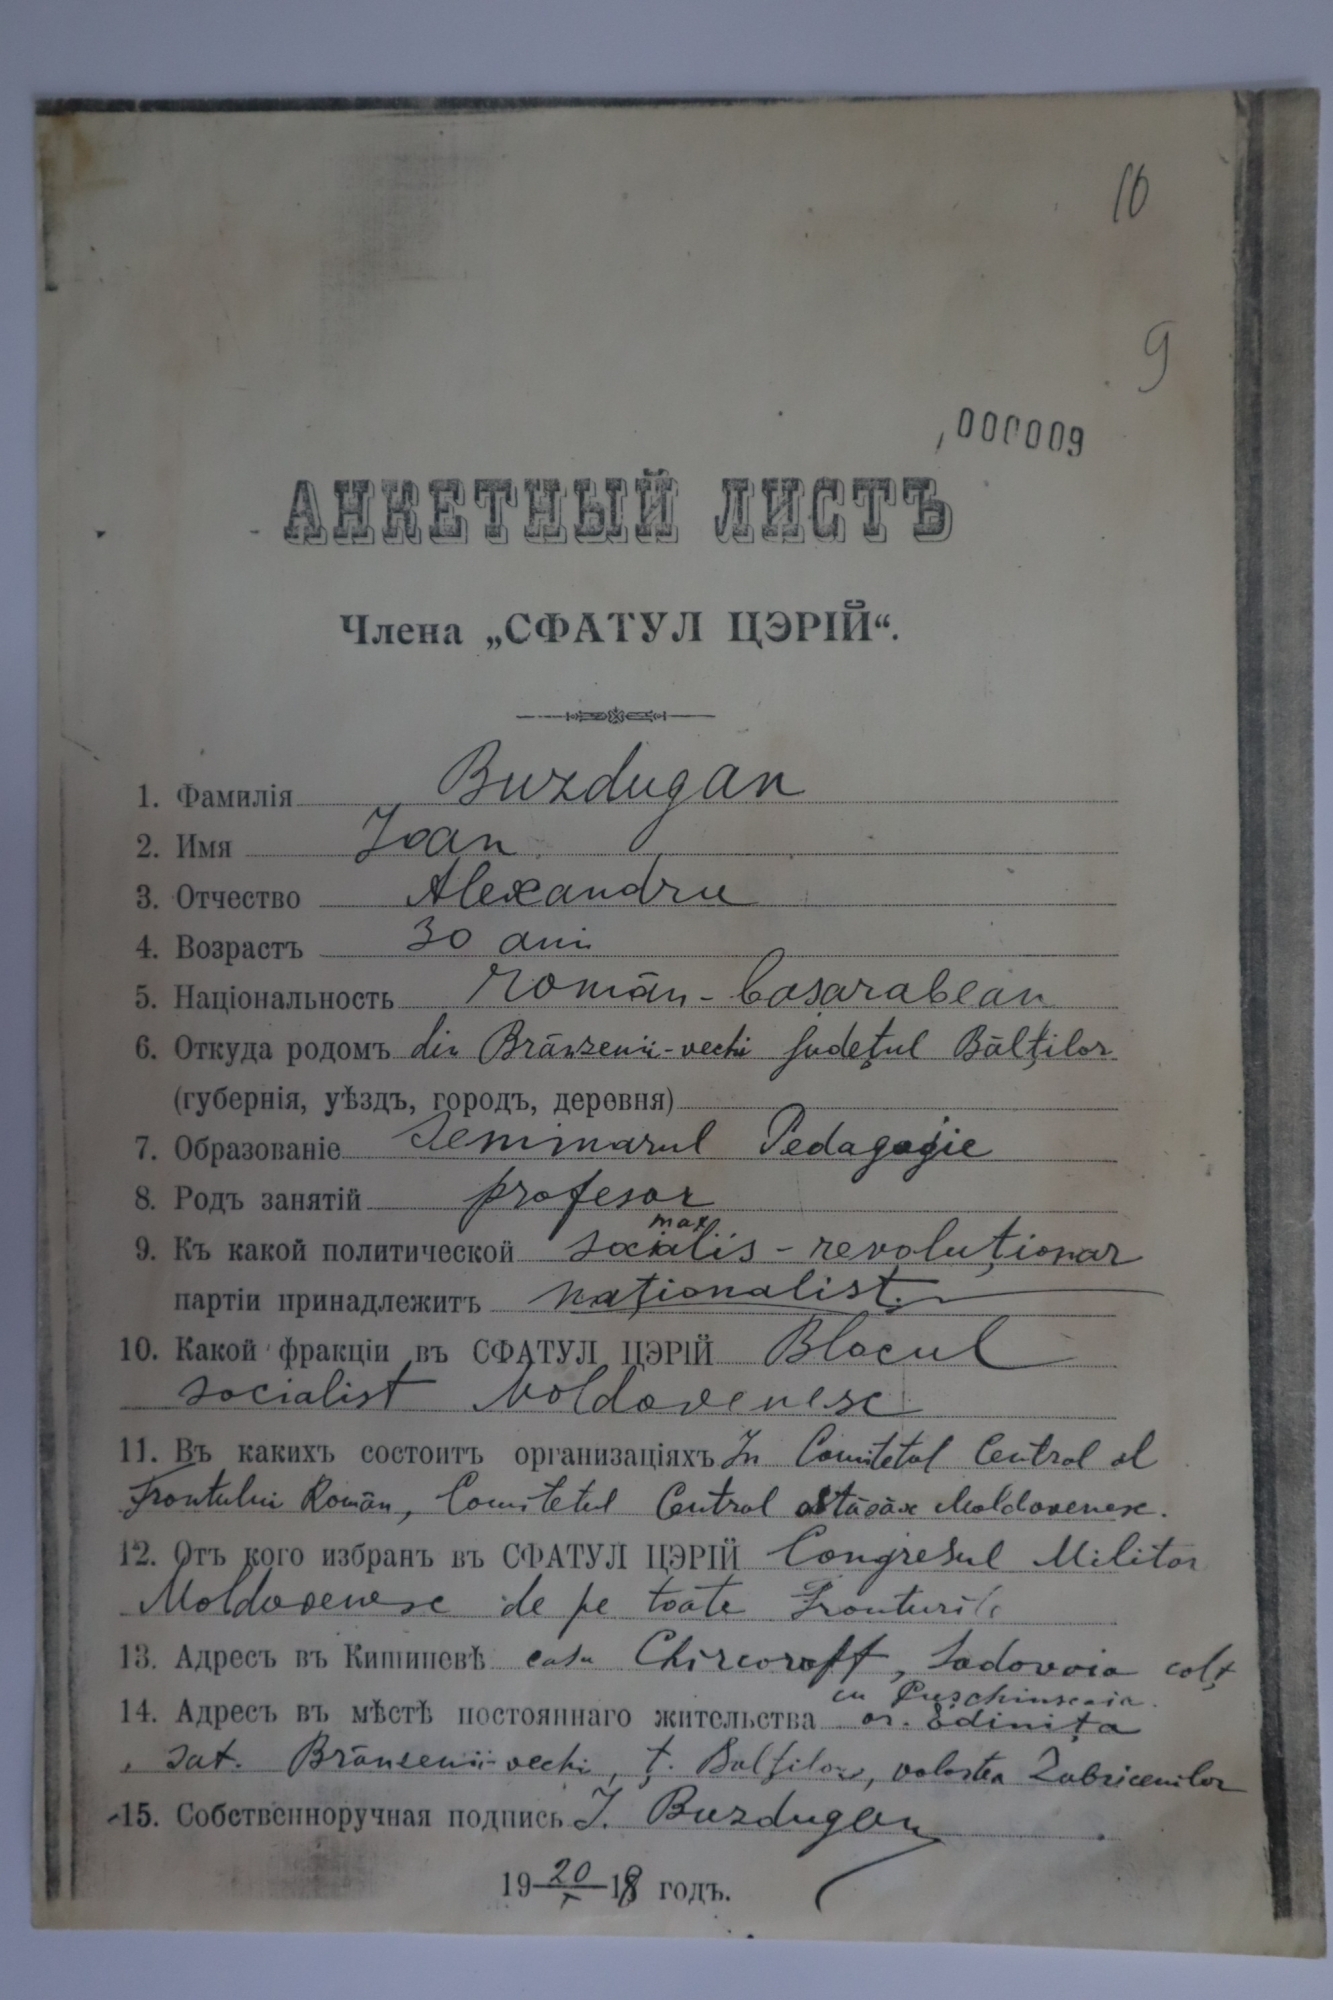 10
9
000009
АНКЕТНЫЙ ЛИСТЪ
Члена „СФАТУЛ ЦЭРІЙ“.
1. Фамилія Buzdugan
2. Имя Ioan
3. Отчество Alexandru
4. Возрастъ 30 ani
5. Національность român-basarabean
6. Откуда родомъ din Brânzenii-vechi județul Bălților
(губернія, уѣздъ, городъ, деревня)
7. Образованіе Seminarul Pedagogic
8. Родъ занятій profesor
max
9. Къ какой политической socialis-revoluționar
партіи принадлежитъ naționalist.
10. Какой фракціи въ СФАТУЛ ЦЭРІЙ Blocul
socialist Moldovenesc
11. Въ какихъ состоитъ организаціяхъ In Comitetul Central al
Frontului Român, Comitetul Central ostășăsc Moldovenesc.
12. Отъ кого избранъ въ СФАТУЛ ЦЭРІЙ Congresul Militar
Moldovenesc de pe toate Fronturile
13. Адресъ въ Кишиневѣ casa Chircoroff, Sadovaia colț
cu Pușchinscaia.
14. Адресъ въ мѣстѣ постояннаго жительства or. Edinița
sat. Brânzenii-vechi, ț. Balților, volostea Zabricenilor
15. Собственноручная подпись I. Buzdugan
19 20/I 18 годъ.